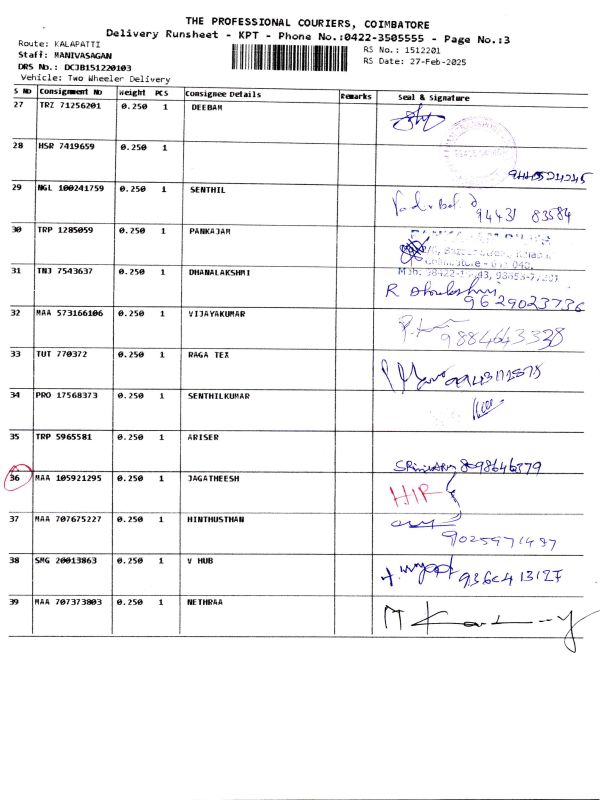 THE PROFESSIONAL COURIERS, COIMBATORE
Delivery Runsheet - KPT - Phone No.:0422-3505555 - Page No.:3
Route: KALAPATTI
RS No.: 1512201
Staff: MANIVASAGAN
RS Date: 27-Feb-2025
DRS No.: DCJB151220103
Vehicle: Two Wheeler Delivery
S NO Consignment No Weight PCS Consignee Details Remarks Seal & Signature
27 TRZ 71256201 0.250 1 DEEBAM
28 HSR 7419659 0.250 1
29 NGL 100241759 0.250 1 SENTHIL
94431 83584
30 TRP 1285059 0.250 1 PANKAJAM
31 TNJ 7543637 0.250 1 DHANALAKSHMI
R
9629023736
32 MAA 573166106 0.250 1 VIJAYAKUMAR
9884643328
33 TUT 770372 0.250 1 RAGA TEX
34 PRO 17568373 0.250 1 SENTHILKUMAR
35 TRP 5965581 0.250 1 ARISER
36 MAA 105921295 0.250 1 JAGATHEESH
37 MAA 707675227 0.250 1 HINTHUSTHAN
38 SMG 20013863 0.250 1 V HUB
39 MAA 707373803 0.250 1 NETHRAA